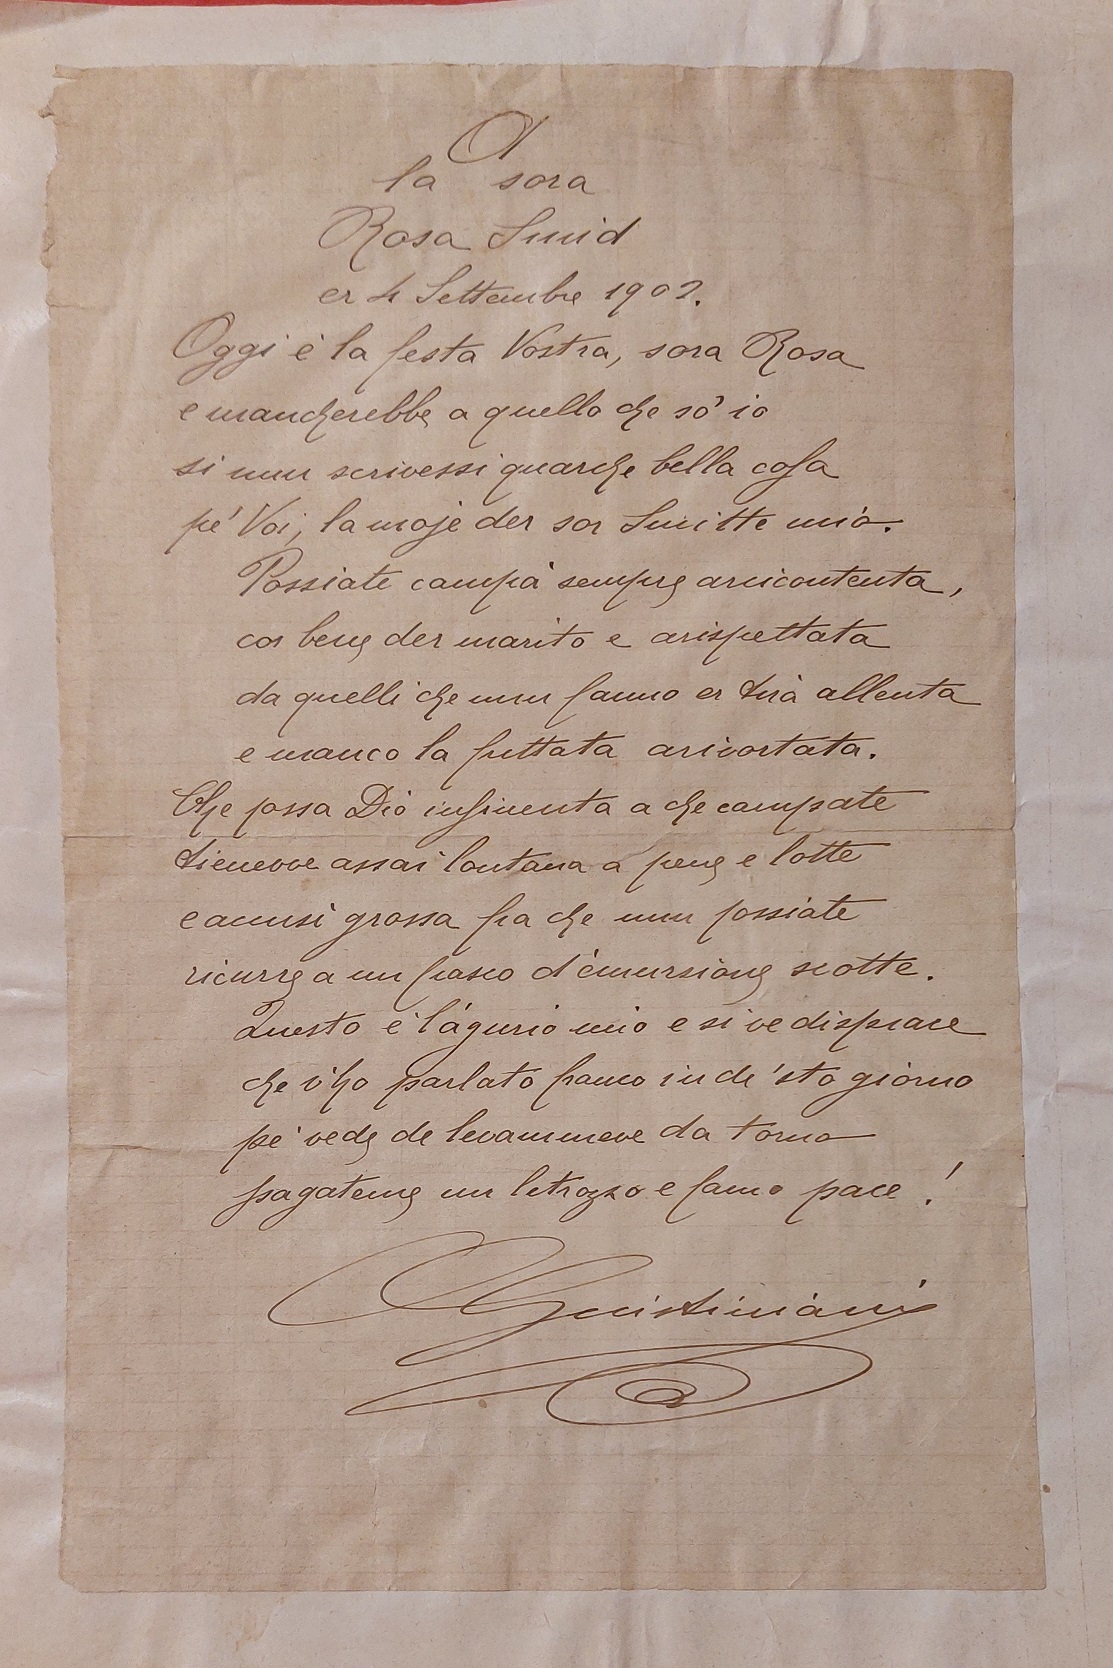 A
la sora
Rosa Smid
er 4 Settembre 1902.
Oggi è la festa Vostra, sora Rosa
e mancherebbe a quello che sò io
si nun scrivessi quarche bella cosa
pe' Voi, la moje der sor Smitte mio.
Possiate campà sempre aricontenta,
cor bene der marito e arispettata
da quelli che nun fanno er tirà allenta
e manco la futtata arivortata.
Che possa Dio insinenta a che campate
tienevve assai lontana a pene e lotte
e accusì grossa fra che nun possiate
ricurre a un fiasco d'emursione scotte.
Questo è l'agurio mio e si ve dispiace
che v'ho parlato franco in de 'sto giorno
pe' vede de levammeve da torno
pagateme un litrozzo e famo pace!
Giustiniani